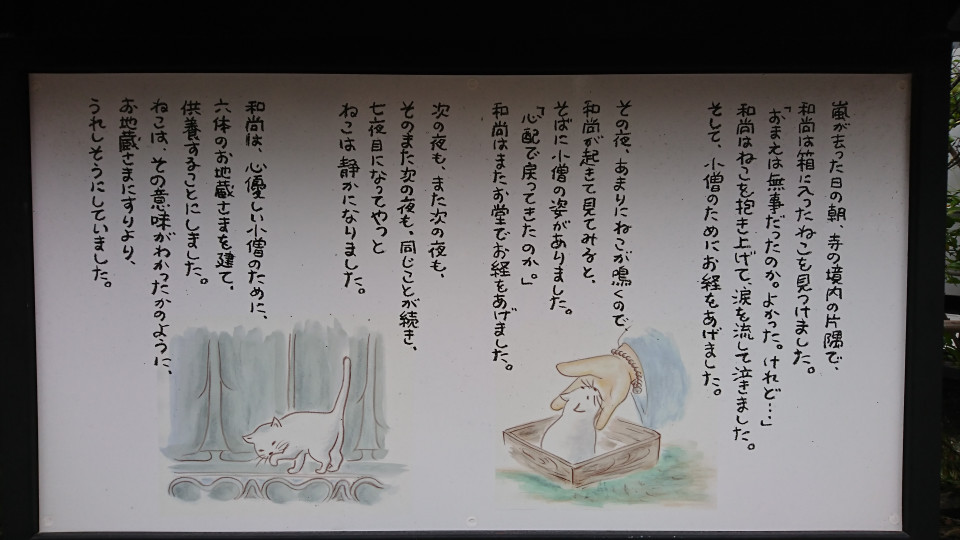 嵐が去った日の朝、寺の境内の片隅で、
和尚は箱に入ったねこを見つけました。
「おまえは無事だったのか。よかった。けれど…」
和尚はねこを抱き上げて、涙を流して泣きました。
そして、小僧のためにお経をあげました。
その夜、あまりにねこが鳴くので
和尚が起きて見てみると、
そばに小僧の姿がありました。
「心配で戻ってきたのか。」
和尚はまた、お堂でお経をあげました。
次の夜も、また次の夜も、
そのまた次の夜も。同じことが続き、
七夜目になってやっと
ねこは静かになりました。
和尚は、心優しい小僧のために、
六体のお地蔵さまを建て、
供養することにしました。
ねこは、その意味がわかったかのように、
お地蔵さまにすりより、
うれしそうにしていました。